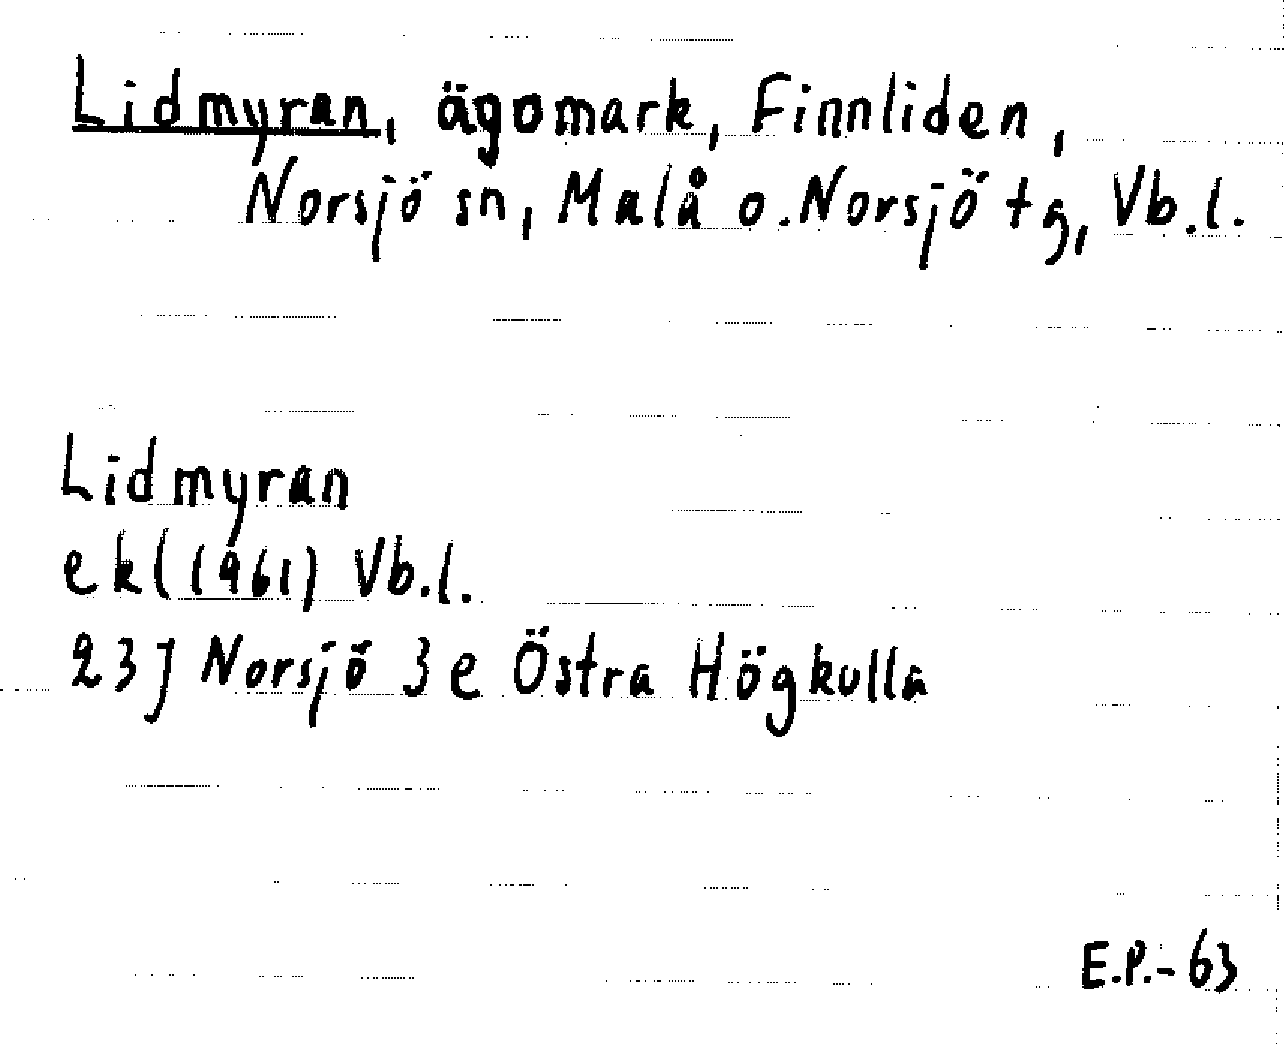 Lidmyran, ägomark, Finnliden,
Norsjö sn, Malå o. Norsjö tg, Vb.l.
Lidmyran
ek (1961) Vb.l.
23J Norsjö 3e Östra Högkulla
E.P.-63